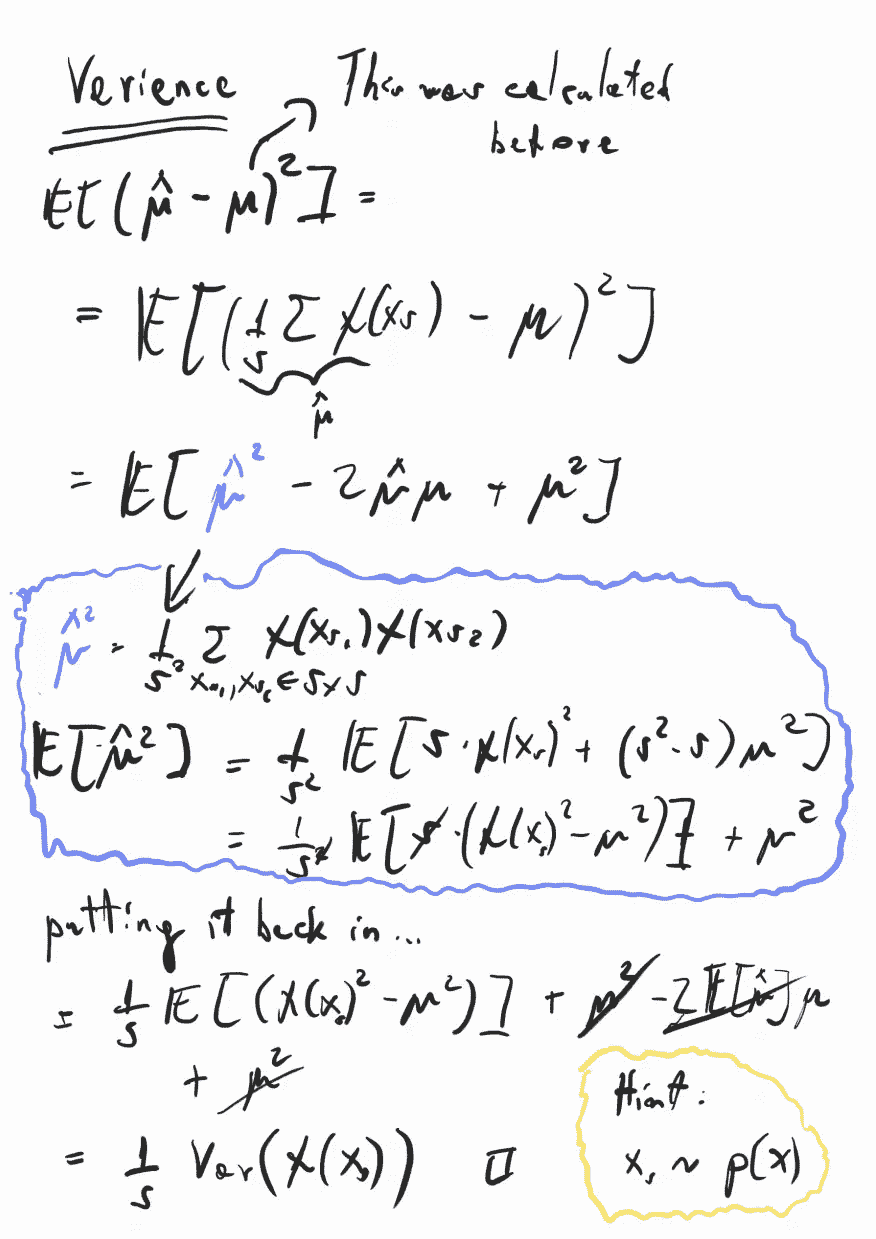 Verience This was calculated
before
𝔼[(μ̂ - μ)²] =
= 𝔼[(1/S Σ χ(xₛ) - μ)²]
μ̂
= 𝔼[μ̂² - 2μ̂μ + μ²]
μ̂² = 1/S² Σ χ(xₛ₁)χ(xₛ₂)
xₛ₁, xₛ₂ ∈ S×S
𝔼[μ̂²] = 1/S² 𝔼[S · χ(xₛ)² + (S² - S)μ²]
= 1/S² 𝔼[S · (χ(xₛ)² - μ²)] + μ²
putting it back in...
= 1/S 𝔼[(χ(xₛ)² - μ²)] + μ² - 2𝔼[μ̂]μ
+ μ²
Hint:
= 1/S Var(χ(xₛ)) □ xₛ ~ p(x)